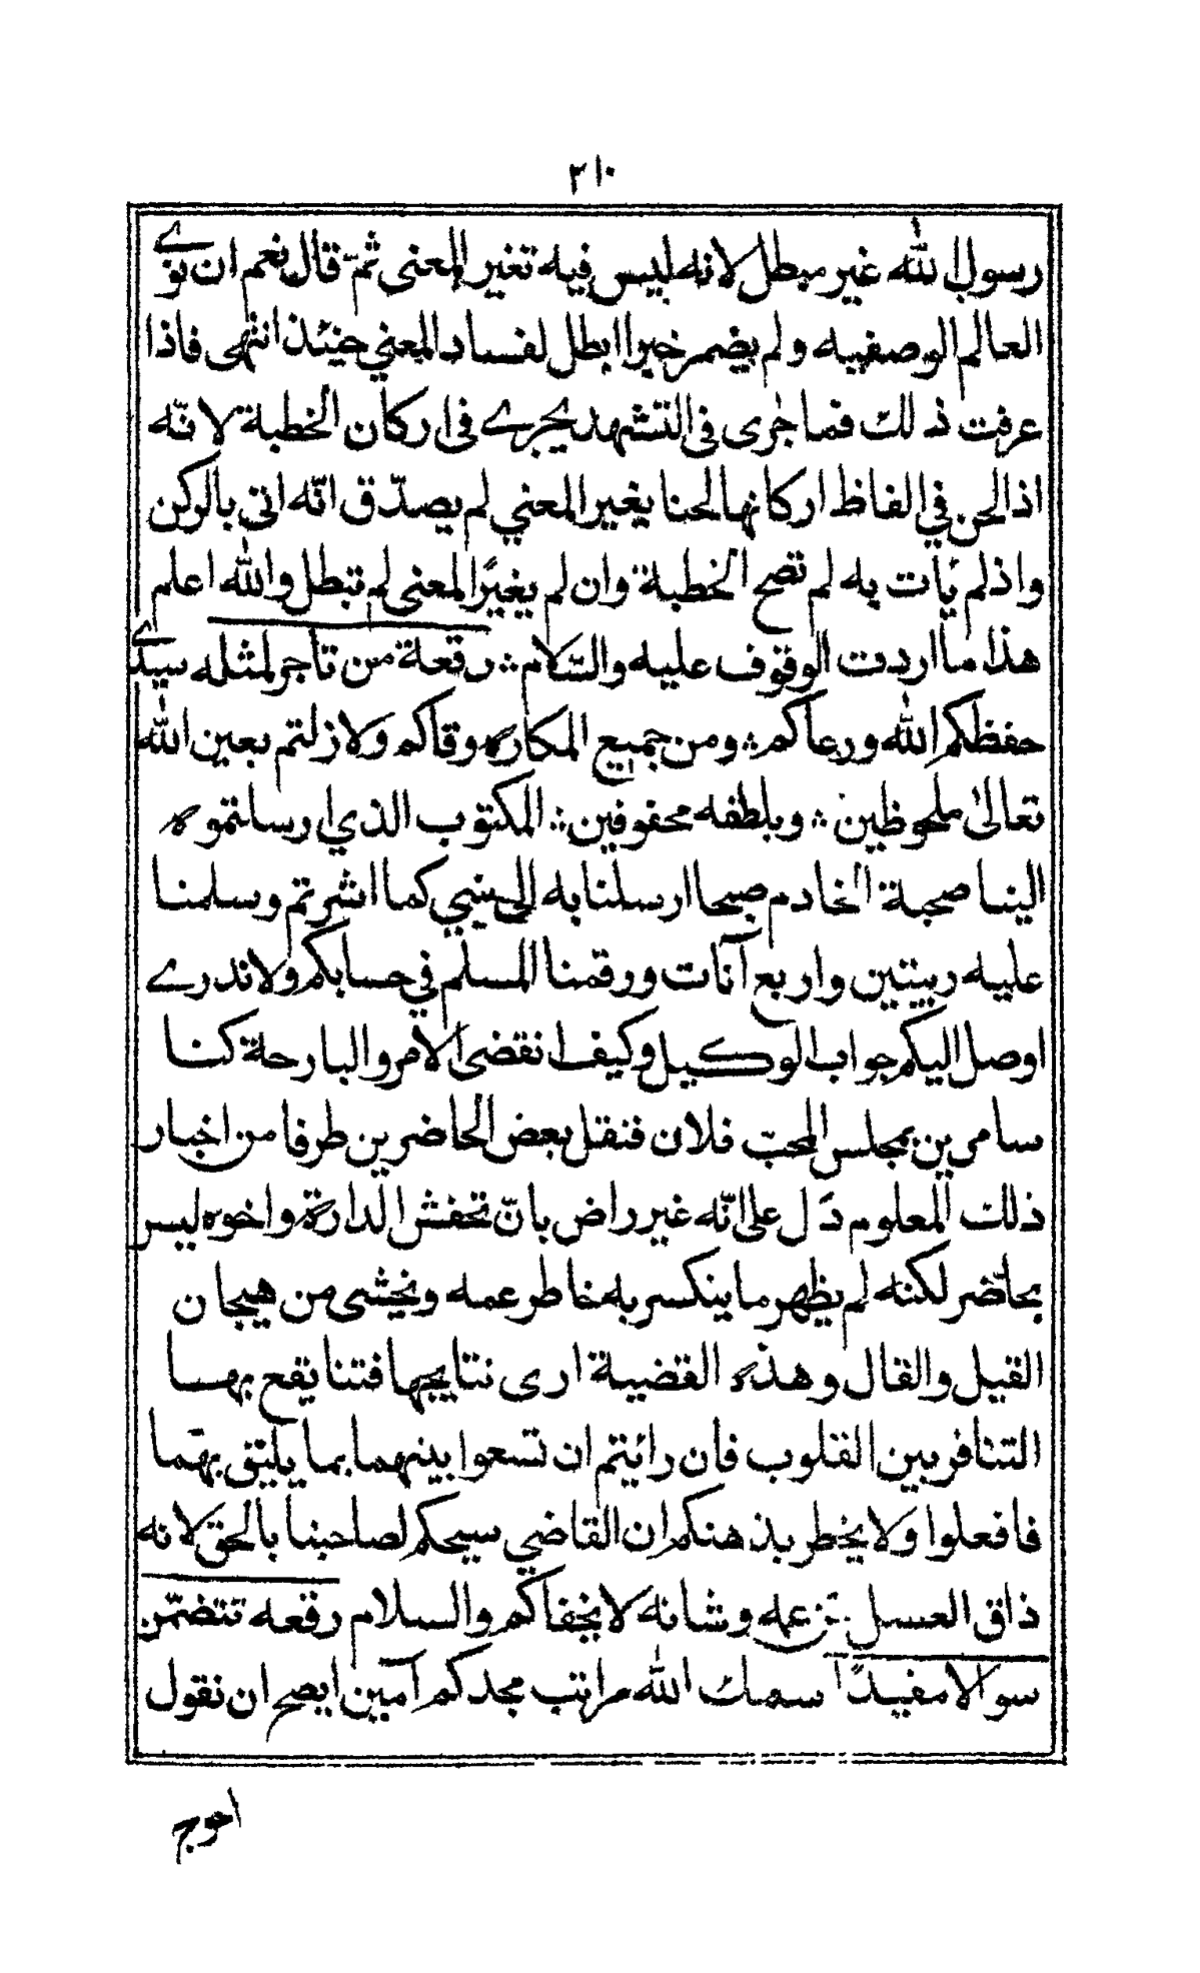 ٣١٠
رسول الله غير مبطل لانه ليس فيه تغير المعنى ثمّ قال نعم ان نوى
العالم الوصفيه ولم يضمر خبرا ابطل لفساد المعني حينئذ انتهى فاذا
عرفت ذلك فما جرى فى التشهد يجرے فى اركان الخطبة لانّه
اذ الحن في الفاظ اركانها لحنا يغير المعني لم يصدّق انّه اتى بالركن
واذ لم يأت به لم تصح الخطبة وان لم يغيّر المعنى لم تبطل والله اعلم
هذا ما اردت الوقوف عليه والسّلام ؞ رقعة من تاجر لمثله سيدے
حفظكم الله ورعاكم ؞ ومن جميع المكاره وقاكم ولا زلتم بعين الله
تعالىٰ ملحوظين ؞ وبلطفه محفوفين ؞ المكتوب الذي ارسلتموه
الينا صحبة الخادم صبحا ارسلنا به الى منبي كما اشرتم وسلمنا
عليه ربيتين واربع آنات ورقمنا المسلم في حسابكم ولا ندرے
اوصل اليكم جواب الوكيل وكيف انقضى الامر والبارحة كنا
سامرين بمجلس المحبّ فلان فنقل بعض الحاضرين طرفا من اخبار
ذلك المعلوم دَل على انّه غير راض بانّ تخفش الدارة واخوه ليس
بحاضر لكنه لم يظهر ما ينكسر به خاطر عمه ونخشى من هيجان
القيل والقال وهذه القضية ارى نتايجها فتنا يقع بهسا
التنافر بين القلوب فان رائيتم ان تسعوا بينهما بما يليق بهما
فافعلوا ولا يخطر بذهنكم ان القاضي سيحكم لصاحبنا بالحق لانه
ذاق العسل بزعمه وشانه لا يخفاكم والسلام رقعه تتضمّن
سوالا مفيدًا اسمك الله مراتب مجدكم آمين ايصح ان نقول
احوج